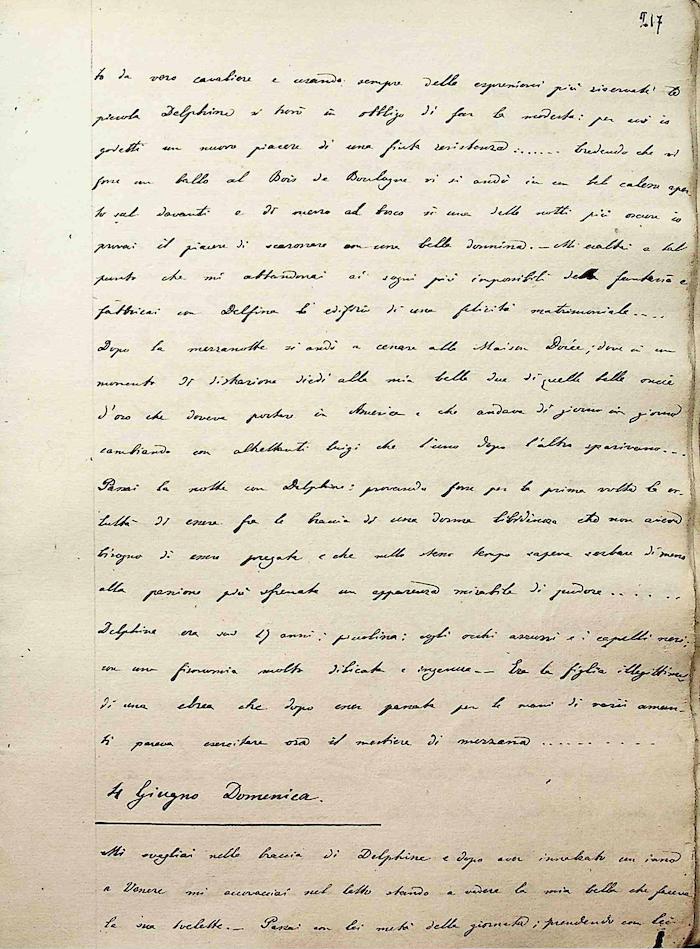 217
to da vero cavaliere e usando sempre delle espressioni più riservate la
piccola Delphine si trovò in obbligo di far la modesta: per cui io
godetti un nuovo piacere di una finta resistenza...... Credendo che vi
fosse un ballo al Bois de Boulogne vi si andò in un bel calesse aper
to sul davanti e di mezzo al bosco in una delle notti più oscure io
provai il piacere di scarrozzare con una bella donnina. — Mi esaltai a tal
punto che mi abbandonai ai sogni più impossibili della fantasia e
fabbricai con Delfina l'edifizio di una felicità matrimoniale....
Dopo la mezzanotte si andò a cenare alla Maison Dorée, dove in un
momento di distrazione diedi alla mia bella due di quelle belle oncie
d'oro che doveva portare in America e che andava di giorno in giorno
cambiando con altrettanti luigi che l'uno dopo l'altro sparivano...
Passai la notte con Delphine: provando forse per la prima volta la
di essere fra le braccia di una donna libidinosa che non aveva
bisogno di essere pregata e che nello stesso tempo sapeva serbare di mezzo
alla passione più sfrenata un apparenza mirabile di pudore......
Delphine era sui 17 anni: piccolina: cogli occhi azzurri e i capelli neri;
con una fisonomia molto delicata e ingenua — Era la figlia illegittima
di una ebrea che dopo esser passata per le mani di varii aman
ti pareva esercitare ora il mestiere di mezzana.........
4 Giugno Domenica.
Mi svegliai nelle braccia di Delphine e dopo aver innalzato un inno
a Venere mi accovacciai nel letto stando a vedere la mia bella che faceva
la sua toelette. — Passai con lei metà della giornata; prendendo con lei